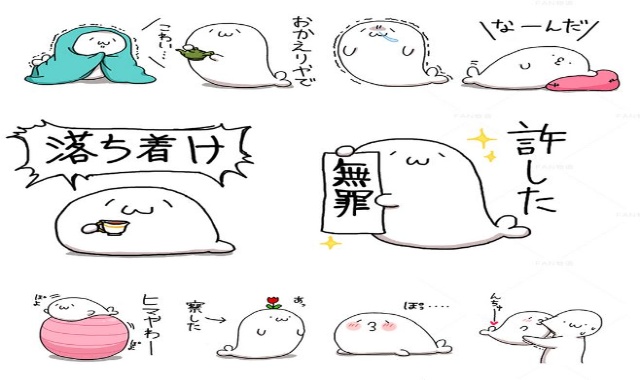 こわい…
おかえりやで
なーんだ
落ち着け
無罪
許した
ぽよ
ヒマやわー
察した
あっ
ぽっ……
んちゅ